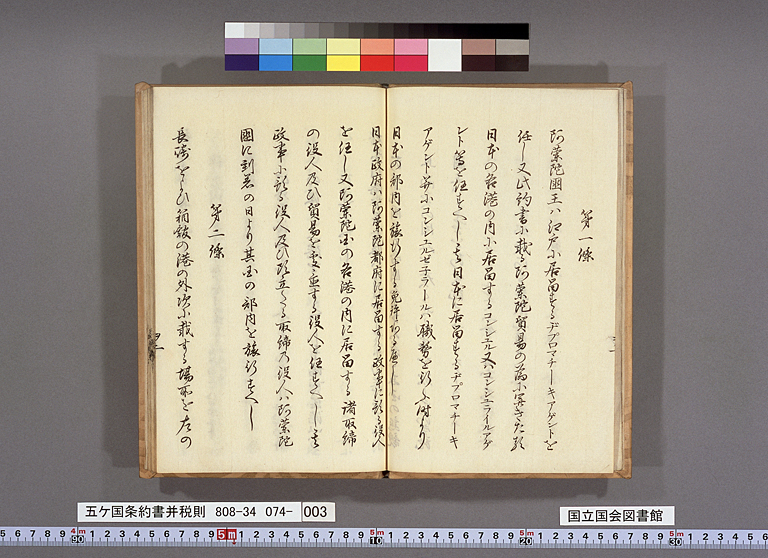 第一條
阿蘭陀國王ハ江戸に居留するヂプロマチーキアゲントを
任し又此約書に載る阿蘭陀貿易の為に開きたる
日本の各港の内に居留するコンシュル又ハコンシュライルアゲ
ント等を任すへし其日本に居留するヂプロマチーキ
アゲント并にコンシュルゼ子ラールハ職務を行ふ時より
日本の部内を旅行する免許あるへし
日本政府ハ阿蘭陀都府に居留する政事に預る役人
を任し又阿蘭陀国の各港の内に居留する諸取締
の役人及ひ貿易を処置する役人を任すへし其
政事に預る役人及ひ頭立たる取締の役人ハ阿蘭陀
國に到着の日より其国の部内を旅行すへし
第二條
長崎及ひ箱館の港の外次に載する場所を左の
五ケ国条約書并税則 808-34 074- 003
国立国会図書館